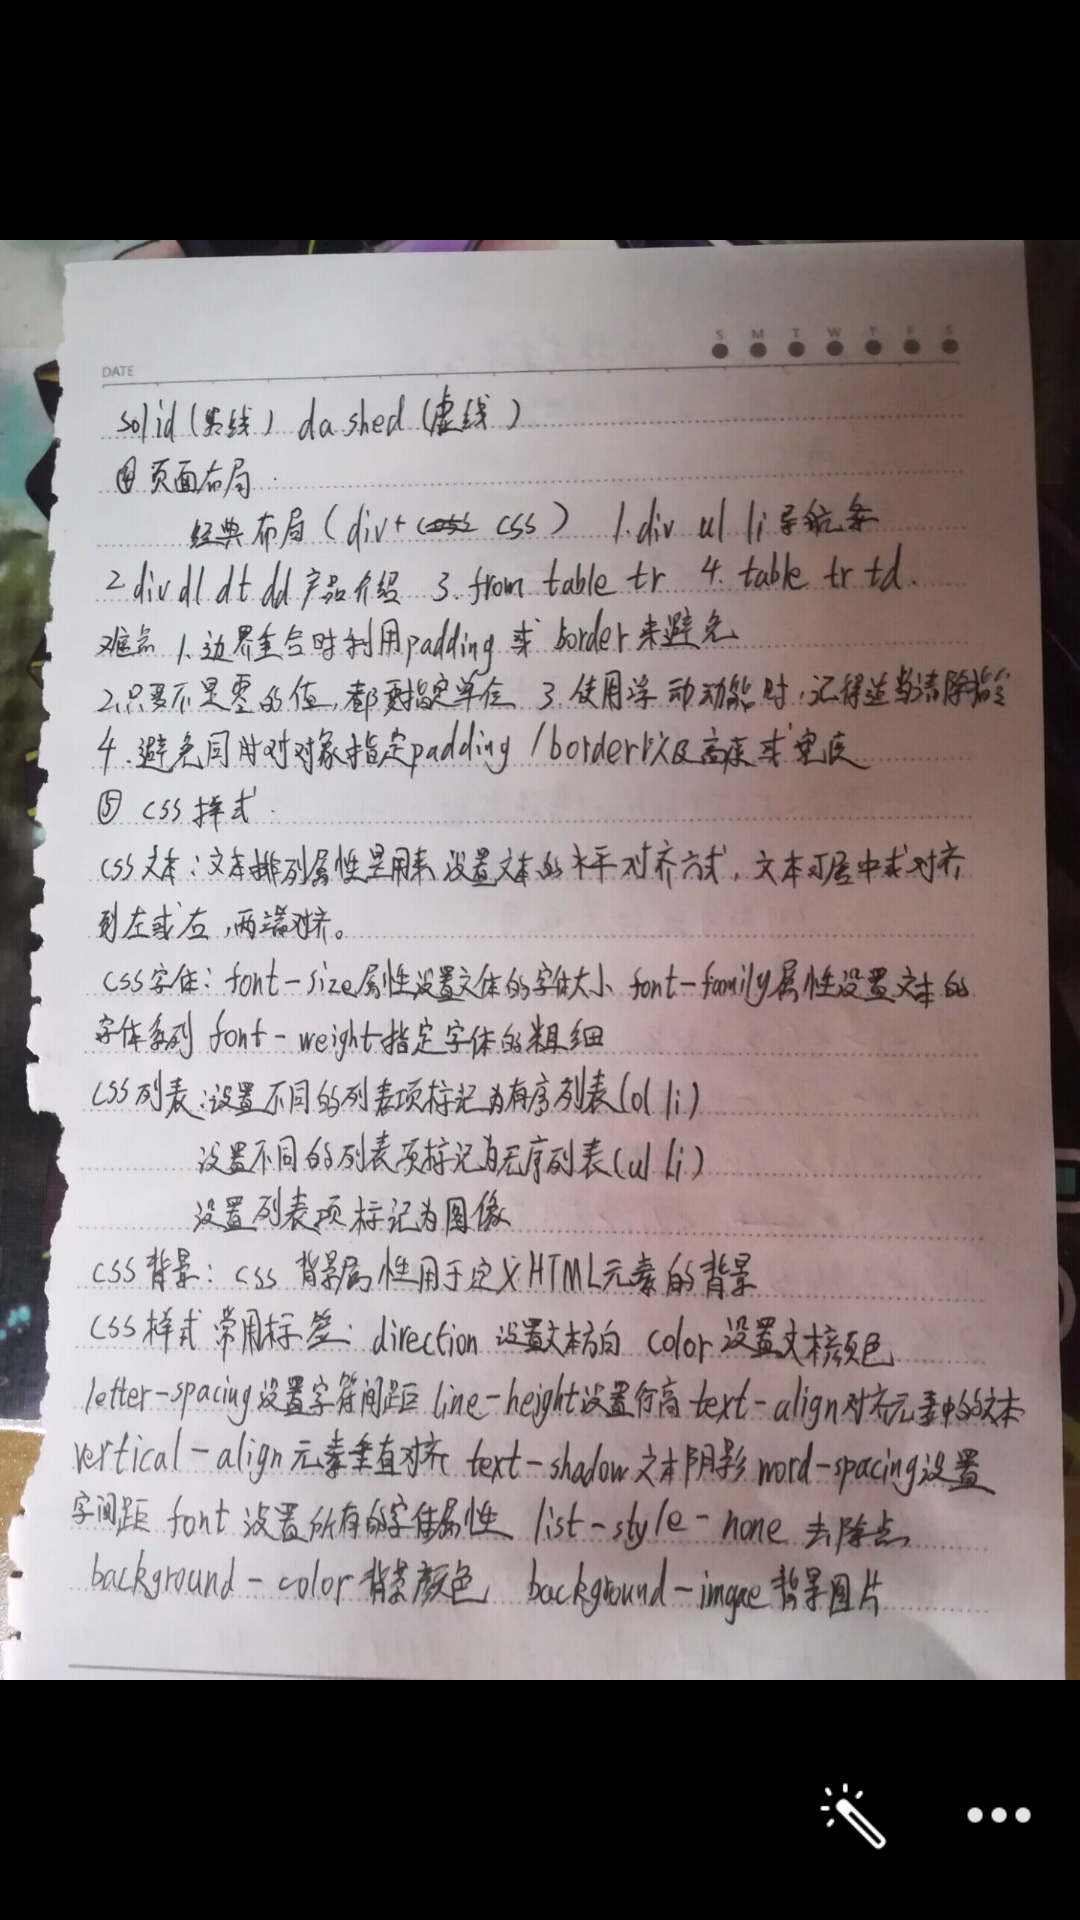 S M T W T F S
DATE
solid（实线） dashed（虚线）
④页面布局：
经典布局（div+ css） 1.div ul li导航条
2.div dl dt dd产品介绍 3.from table tr 4. table tr td.
难点 1.边界重合时利用padding 或 border来避免
2.只要不是零的值，都要指定单位 3.使用浮动功能时，记得适当清除指令
4.避免同时对对象指定padding /border以及高度或宽度
⑤ css样式.
css文本：文本排列属性是用来设置文本的水平对齐方式，文本可居中或对齐
到左或右，两端对齐。
css字体：font-size属性设置文体的字体大小 font-family属性设置文本的
字体系列 font-weight指定字体的粗细
css列表：设置不同的列表项标记为有序列表(ol li)
设置不同的列表项标记为无序列表(ul li)
设置列表项标记为图像
css背景：css 背景属性用于定义HTML元素的背景
css样式常用标签：direction 设置文本方向 color设置文本颜色
letter-spacing设置字符间距 line-height设置行高 text-align对齐元素中的文本
vertical-align元素垂直对齐 text-shadow文本阴影 word-spacing设置
字间距 font 设置所有的字体属性 list-style-none 去除点
background-color背景颜色 background-imgae背景图片